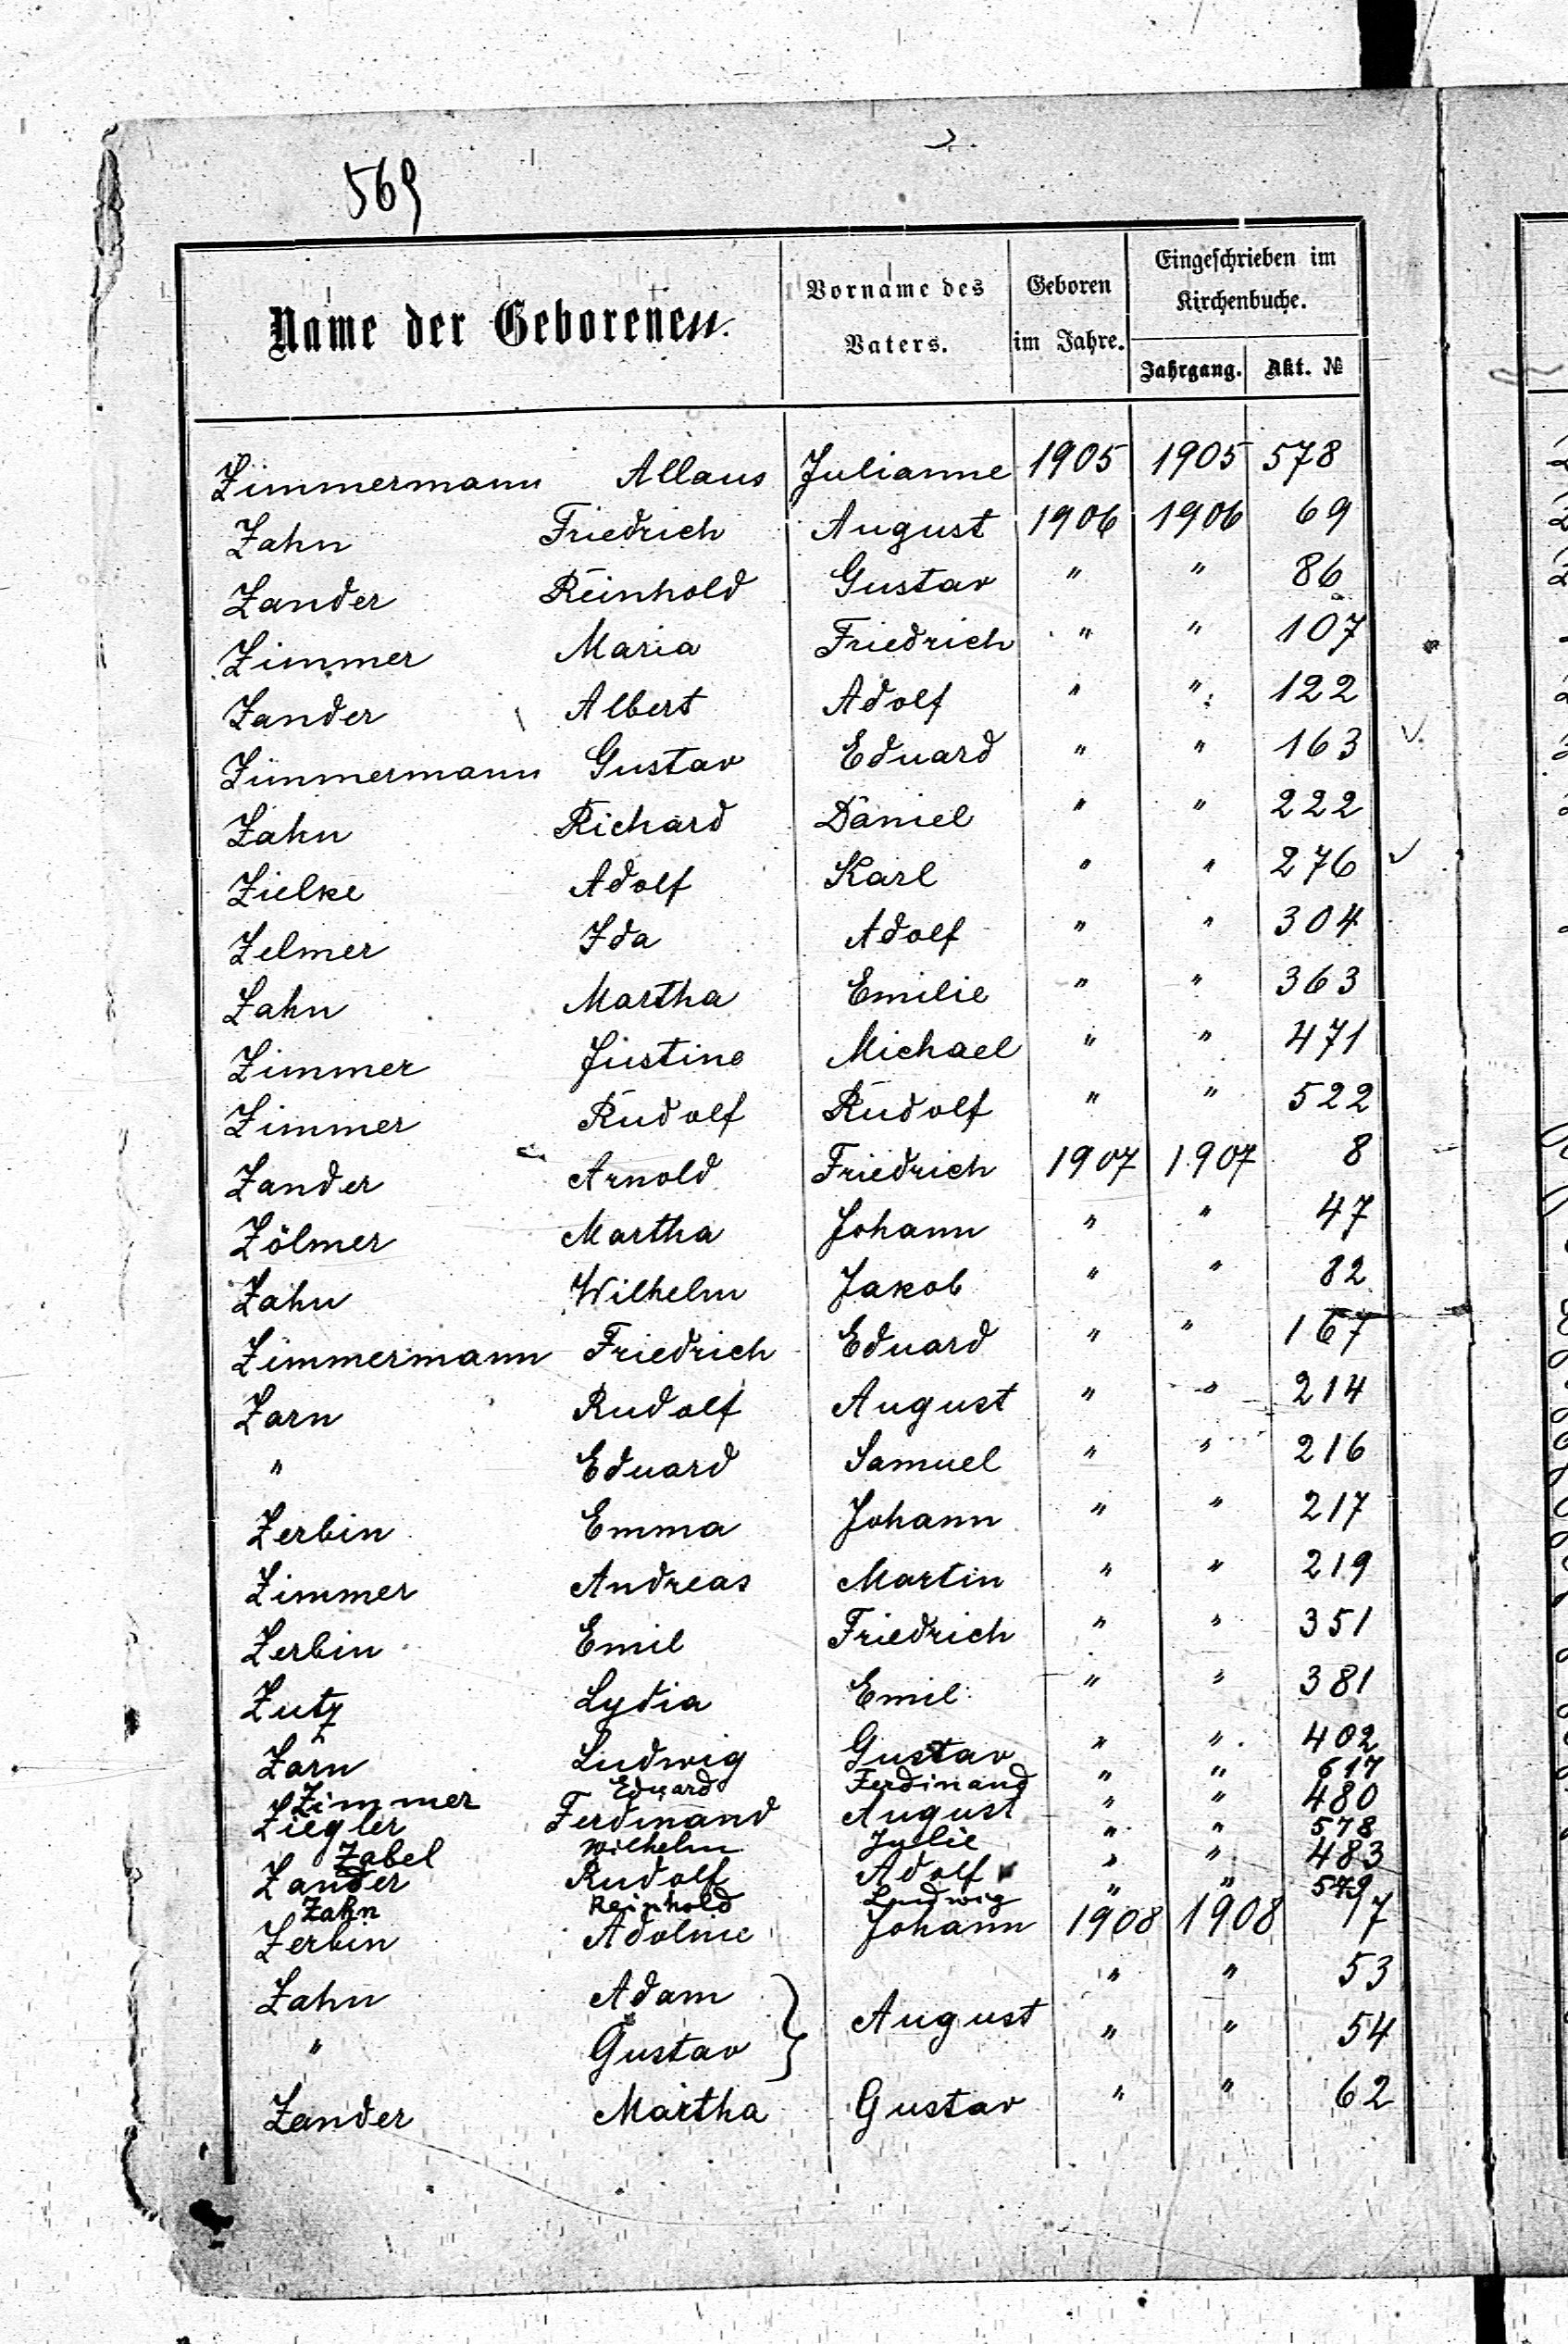 569
Name der Geborenen.
Vorname des Vaters.
Geboren im Jahre.
Eingeschrieben im Kirchenbuche.
Jahrgang. Akt. №
Zimmermann Allaus Julianne 1905 1905 578
Zahn Friedrich August 1906 1906 69
Zander Reinhold Gustav " " 86
Zimmer Maria Friedrich " " 107
Zander Albert Adolf " " 122
Zimmermann Gustav Eduard " " 163
Zahn Richard Daniel " " 222
Zielke Adolf Karl " " 276
Zelmer Ida Adolf " " 304
Zahn Martha Emilie " " 363
Zimmer Justine Michael " " 471
Zimmer Rudolf Rudolf " " 522
Zander Arnold Friedrich 1907 1907 8
Zölmer Martha Johann " " 47
Zahn Wilhelm Jakob " " 82
Zimmermann Friedrich Eduard " " 167
Zarn Rudolf August " " 214
" Eduard Samuel " " 216
Zerbin Emma Johann " " 217
Zimmer Andreas Martin " " 219
Zerbin Emil Friedrich " " 351
Zutz Lydia Emil " " 381
Zarn Ludwig Gustav " " 402
Zimmer Eduard Ferdinand " " 617
Ziegler Ferdinand August " " 480
Zabel Wilhelm Julie " " 578
Zander Rudolf Adolf " " 483
Zahn Reinhold Ludwig " " 579
Zerbin Adoline Johann 1908 1908 17
Zahn Adam } August " " 53
" Gustav " " 54
Zander Martha Gustav " " 62